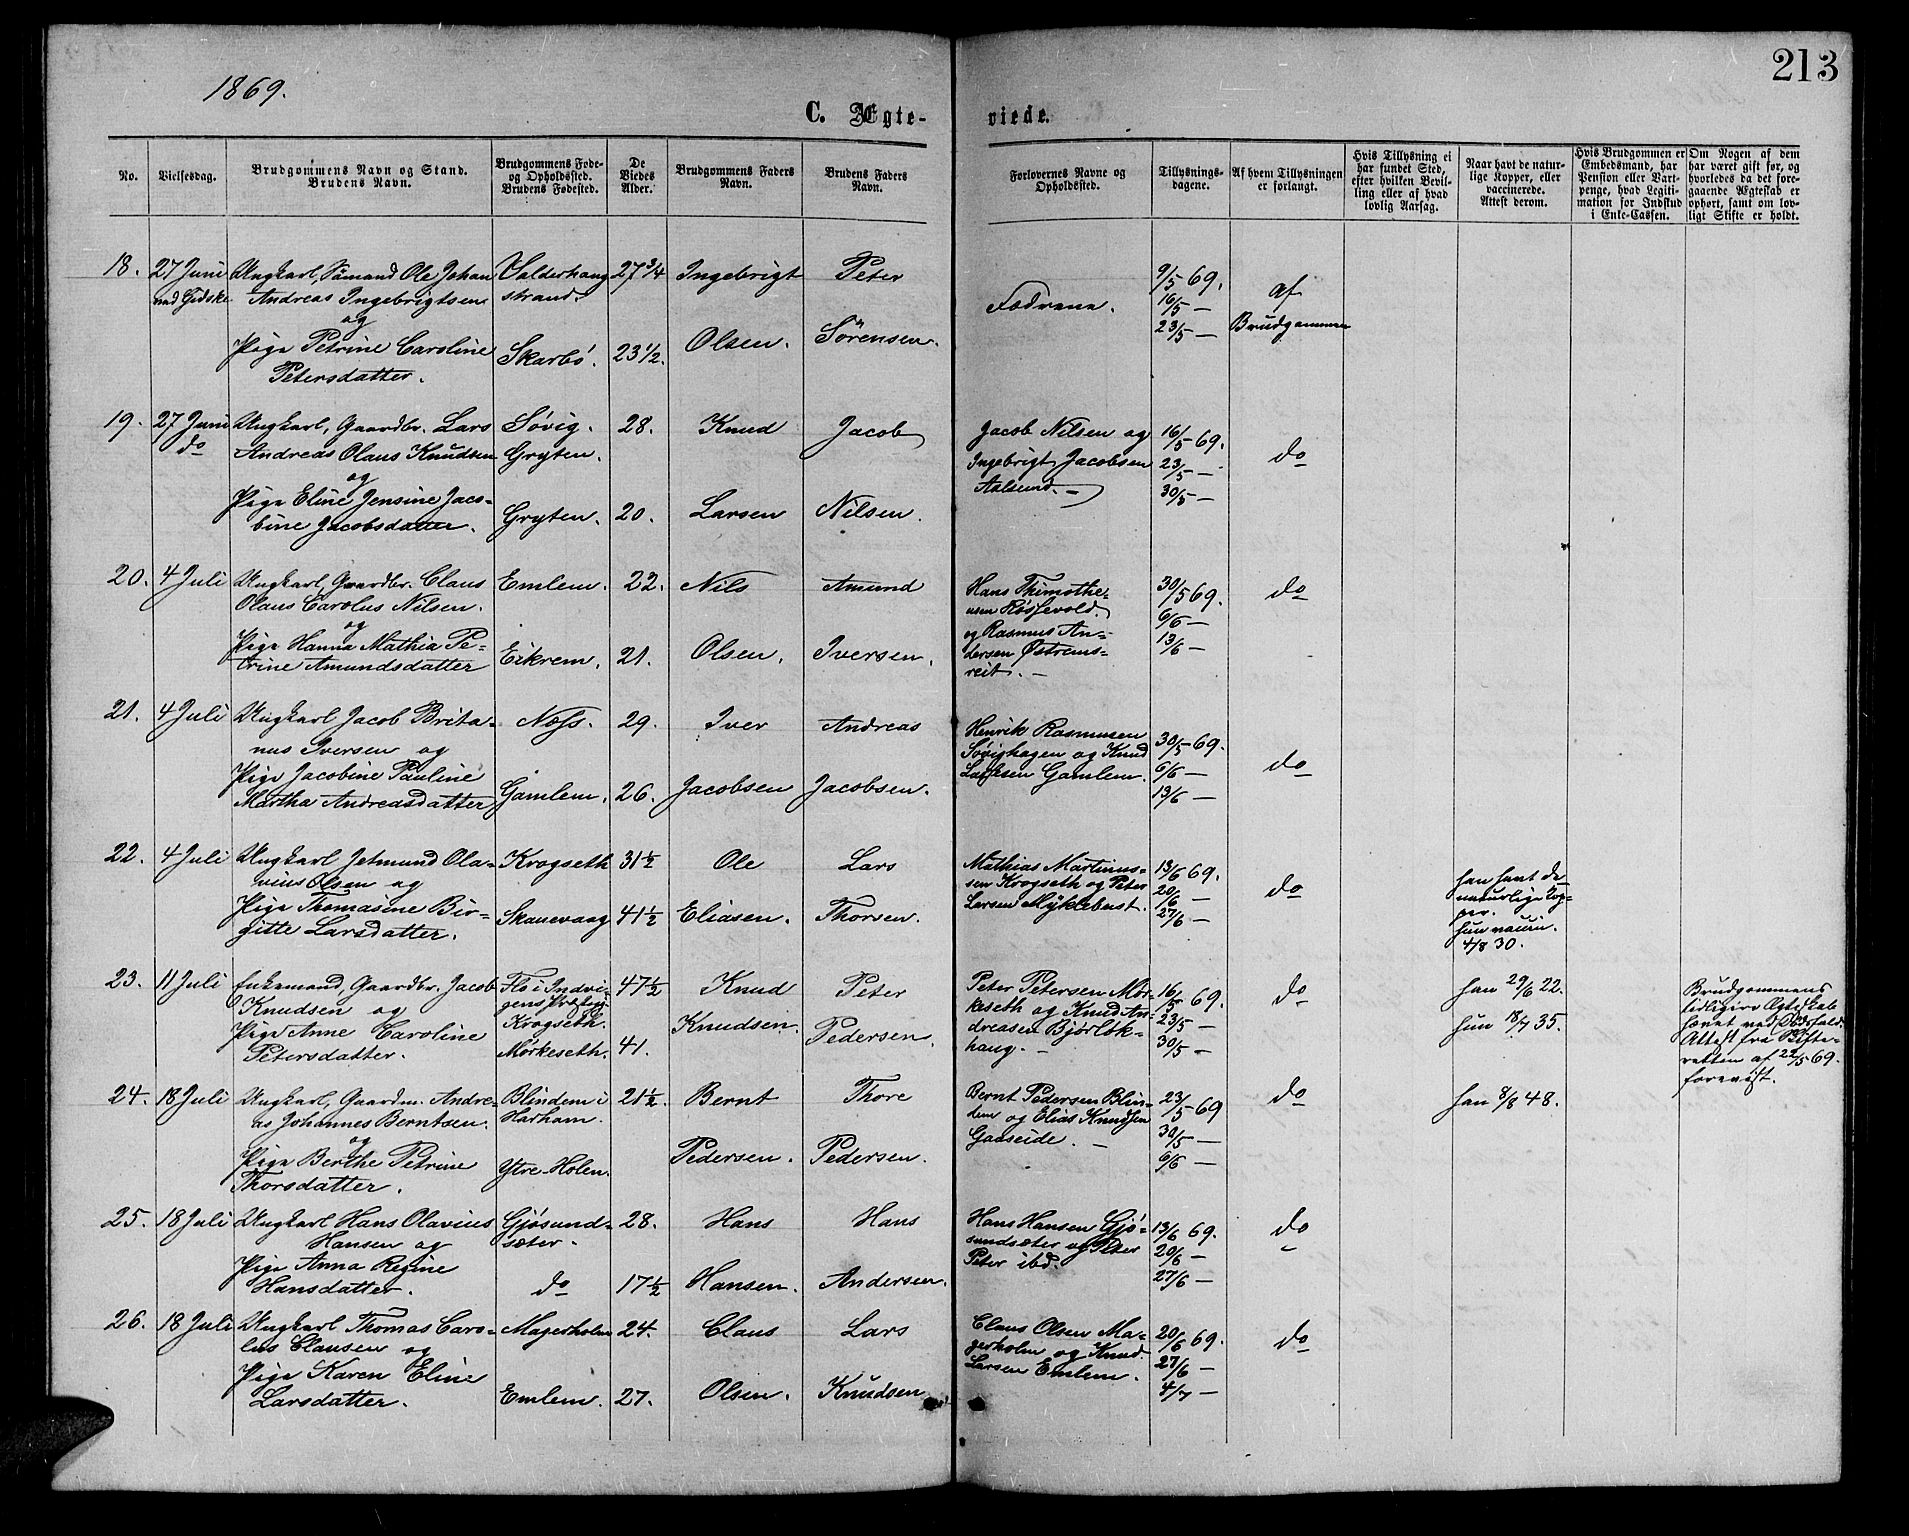 213
1869.
C. Ægte-
viede.
No.
Vielsesdag.
Brudgommens Navn og Stand.
Brudens Navn.
Brudgommens Føde-
og Opholdssted.
Brudens Fødested.
De
Viedes
Alder.
Brudgommens Faders
Navn.
Brudens Faders
Navn.
Forlovernes Navne og
Opholdssted.
Tillysnings-
dagene.
Af hvem Tillysningen
er forlangt.
Hvis Tillysning ei
har fundet Sted,
efter hvilken Bevil-
ling eller af hvad
lovlig Aarsag.
Naar havt de natur-
lige Kopper, eller
vaccinerede.
Attest derom.
Hvis Brudgommen er
Embedsmand, har
Pension eller Vart-
penge, hvad Legiti-
mation for Indskud
i Enke-Cassen.
Om Nogen af dem
har været gift før, og
hvorledes da det fore-
gaaende Ægteskab er
ophørt, samt om lov-
ligt Skifte er holdt.
18. 27 Juni Ungkarl, Sømand Ole Johan Valderhaug 27 3/4 Ingebrigt Peter 9/5 69. af
ved Gidske Andreas Ingebrigtsen strand. Fædrene. 16/5 — Brudgommen
og 23/5 —
Pige Petrine Caroline Skarbö. 23 1/2. Olsen. Sörensen.
Petersdatter.
19. 27 Juni Ungkarl, Gaardbr. Lars Søvig. 28. Knud Jacob Jacob Nilsen og 16/5 69. do
do Andreas Olaus Knudsen Gryten. Ingebrigt Jacobsen 23/5 —
og Aalesund. — 30/5 —
Pige Eline Jensine Jaco- Gryten. 20. Larsen Nilsen.
bine Jacobsdatter.
20. 4 Juli Ungkarl, Gaardbr. Claus Emlem. 22. Nils Amund Hans Thimothe- 30/5 69. do
Olaus Carolus Nilsen. usen Røssevold. 6/6 —
og og Rasmus An- 13/6 —
Pige Hanna Mathia Pe- Eikrem. 21. Olsen. Iversen. dersen Østrems-
trine Amundsdatter reit. —
21. 4 Juli Ungkarl Jacob Brita- Næss. 29. Iver Andreas Henrik Rasmusen 30/5 69. do
nus Iversen og Søvighagen og Knud 6/6 —
Pige Jacobine Pauline Gamlem. 26. Jacobsen Jacobsen. Gamlem. 13/6 —
Martha Andreasdatter
22. 4 Juli Ungkarl Jetmund Ola- Krogseth 31 1/2 Ole Lars Mathias Martinus- 13/6 69. do han havt de
vius Olsen og sen Krogseth og Peter 20/6 — naturlige Kop-
Pige Thomasine Bir- Skanevaag 41 1/2 Eliasen. Thorsen. Larsen Myklebust. 27/6 — per.
gitte Larsdatter. hun vaccin.
4/8 30.
23. 11 Juli Enkemand, Gaardbr. Jacob Flo i Indvi- 47 1/2 Knud Peter Peter Petersen Mör- 16/5 69. do han 29/6 22. Brudgommens
Knudsen og gens Prgtgj. keseth og Knud An- 23/5 — hun 18/7 35. tidligere Ægteskab
Pige Anne Caroline Krogseth. Knudsen. Pedersen. dreasen Bjørlök- 30/5 — hævet ved Dødsfald.
Petersdatter. Mørkeseth. 41. haug. — Attest fra Skifte-
retten af 22/5 69.
forevist.
24. 18 Juli Ungkarl, Gaardm. Andre- Blindem i 21 1/2. Bernt Thore Bernt Pedersen Blin- 23/5 69 do han 8/8 48.
as Johannes Berntsen. Harham. dem og Elias Knudsen 30/5 —
og Gaaseide. — 6/6 —
Pige Berthe Petrine Ytre-Holen. Pedersen. Pedersen.
Thorsdatter.
25. 18 Juli Ungkarl Hans Olavius Gjøsund- 28. Hans Hans Hans Hansen Gjö- 13/6 69. do
Hansen og sæter. sundsæter og Peter 20/6 —
Pige Anna Regine do 17 1/2 Hansen. Andersen. Peter ibd. 27/6 —
Hansdatter.
26. 18 Juli Ungkarl Thomas Caro- Magerholm 24. Claus Lars Claus Olsen Ma- 20/6 69. do
lus Clausen og gerholm og Knud 27/6 —
Pige Karen Eline Emlem. 27. Olsen. Knudsen Larsen Emlem. 4/7 —
Larsdatter.